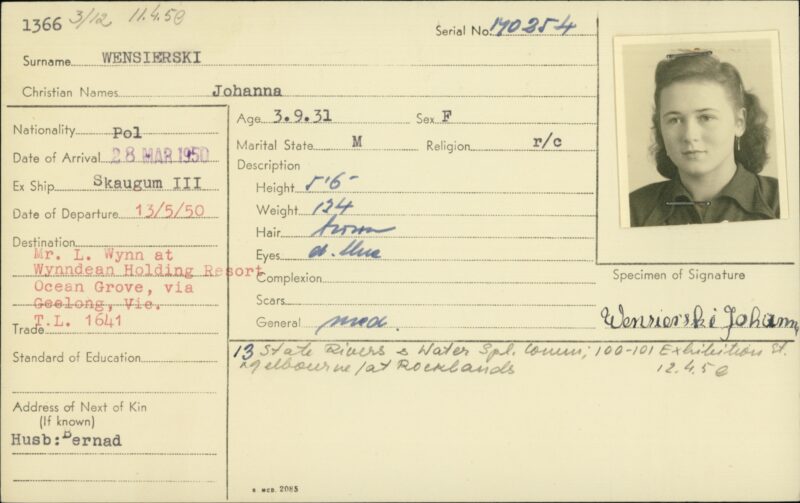 1366 3/12 11.4.50
Serial No. 170254
Surname WENSIERSKI
Christian Names Johanna
Nationality Pol
Date of Arrival 28 MAR 1950
Ex Ship Skaugum III
Date of Departure 13/5/50
Destination
Mr. L. Wynn at
Wynndean Holding Resort
Ocean Grove, via
Geelong, Vic.
T.L. 1641
Trade
Standard of Education
Address of Next of Kin
(If known)
Husb: Bernad
Age 3.9.31 Sex F
Marital State M Religion r/c
Description
Height 5'6"
Weight 124
Hair brown
Eyes d. blue
Complexion
Scars
General med.
Specimen of Signature
Wensierski Johanna
13 State Rivers & Water Spl. Comm; 100-101 Exhibition St.
Melbourne/at Rocklands 12.4.50
S MCD. 2085